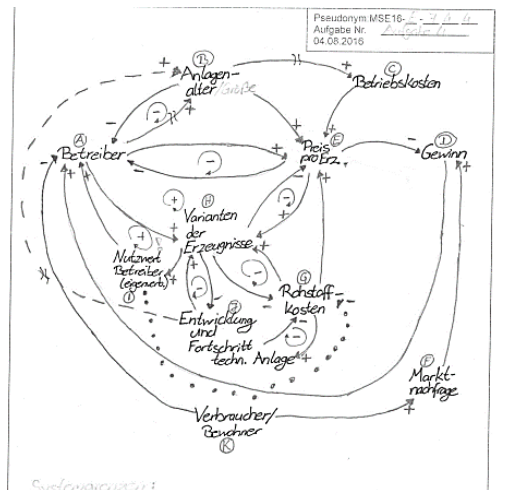 Pseudonym MSE16-
Aufgabe Nr.
04.08.2016
B
Anlagen-
alter/Größe
C
Betriebskosten
A
Betreiber
E
Preis
pro Erz.
D
Gewinn
H
Varianten
der
Erzeugnisse
Nutzwert
Betreiber
(eigenart.)
I
G
Rohstoff-
kosten
J
Entwicklung
und
Fortschritt
techn. Anlage
F
Markt-
nachfrage
Verbraucher/
Bewohner
K